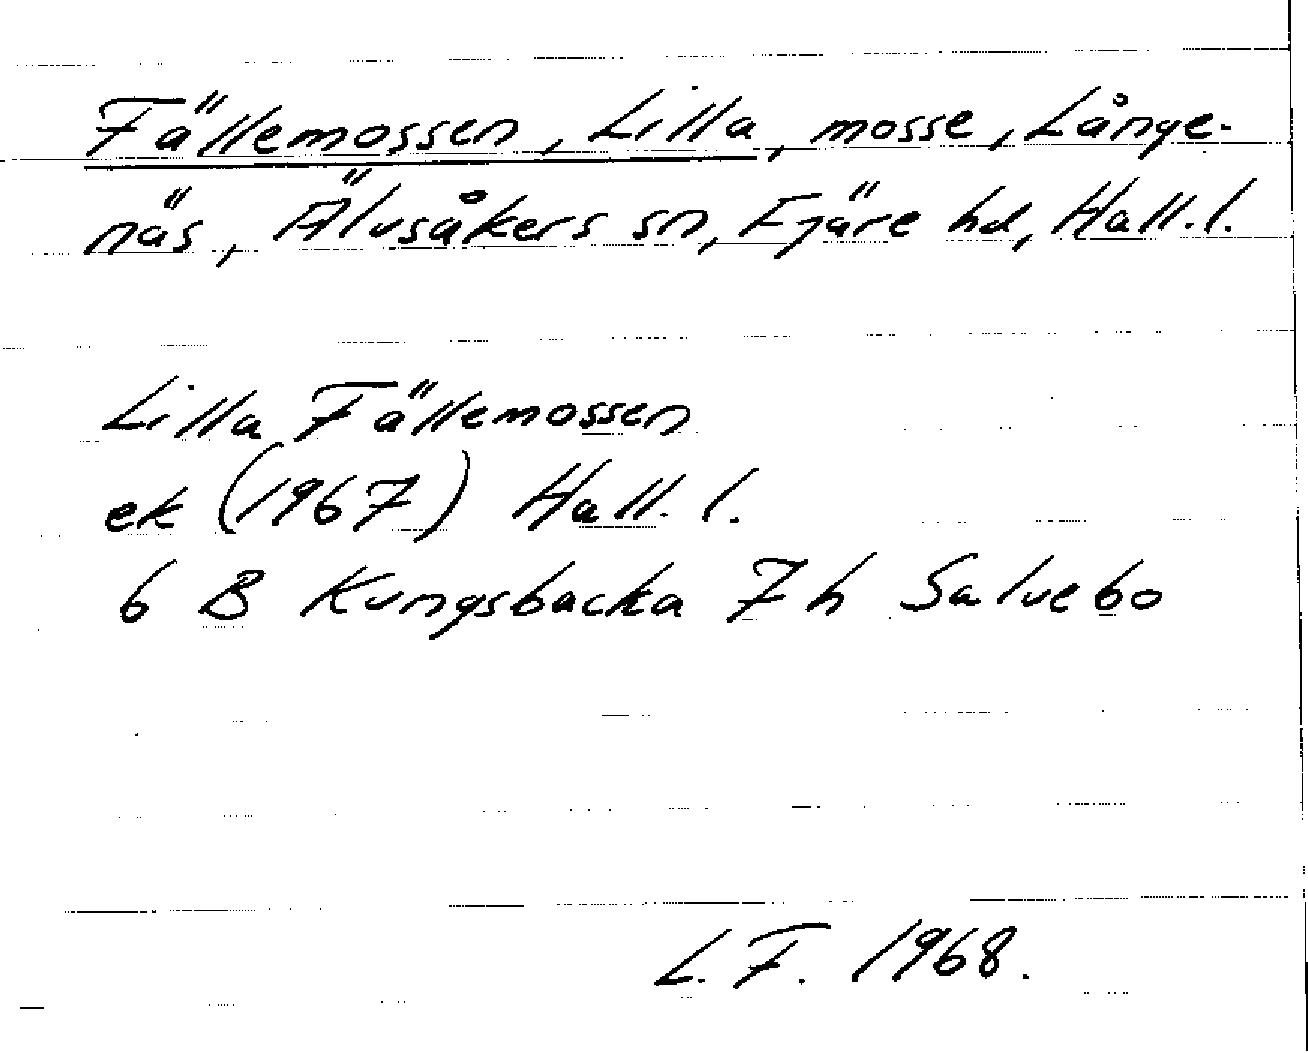 Fällemossen, Lilla, mosse, Långe-
näs, Älvsåkers sn, Fjäre hd, Hall.l.
Lilla Fällemossen
ek (1967) Hall. l.
6 B Kungsbacka 7 h Salvebo
L. F. 1968.